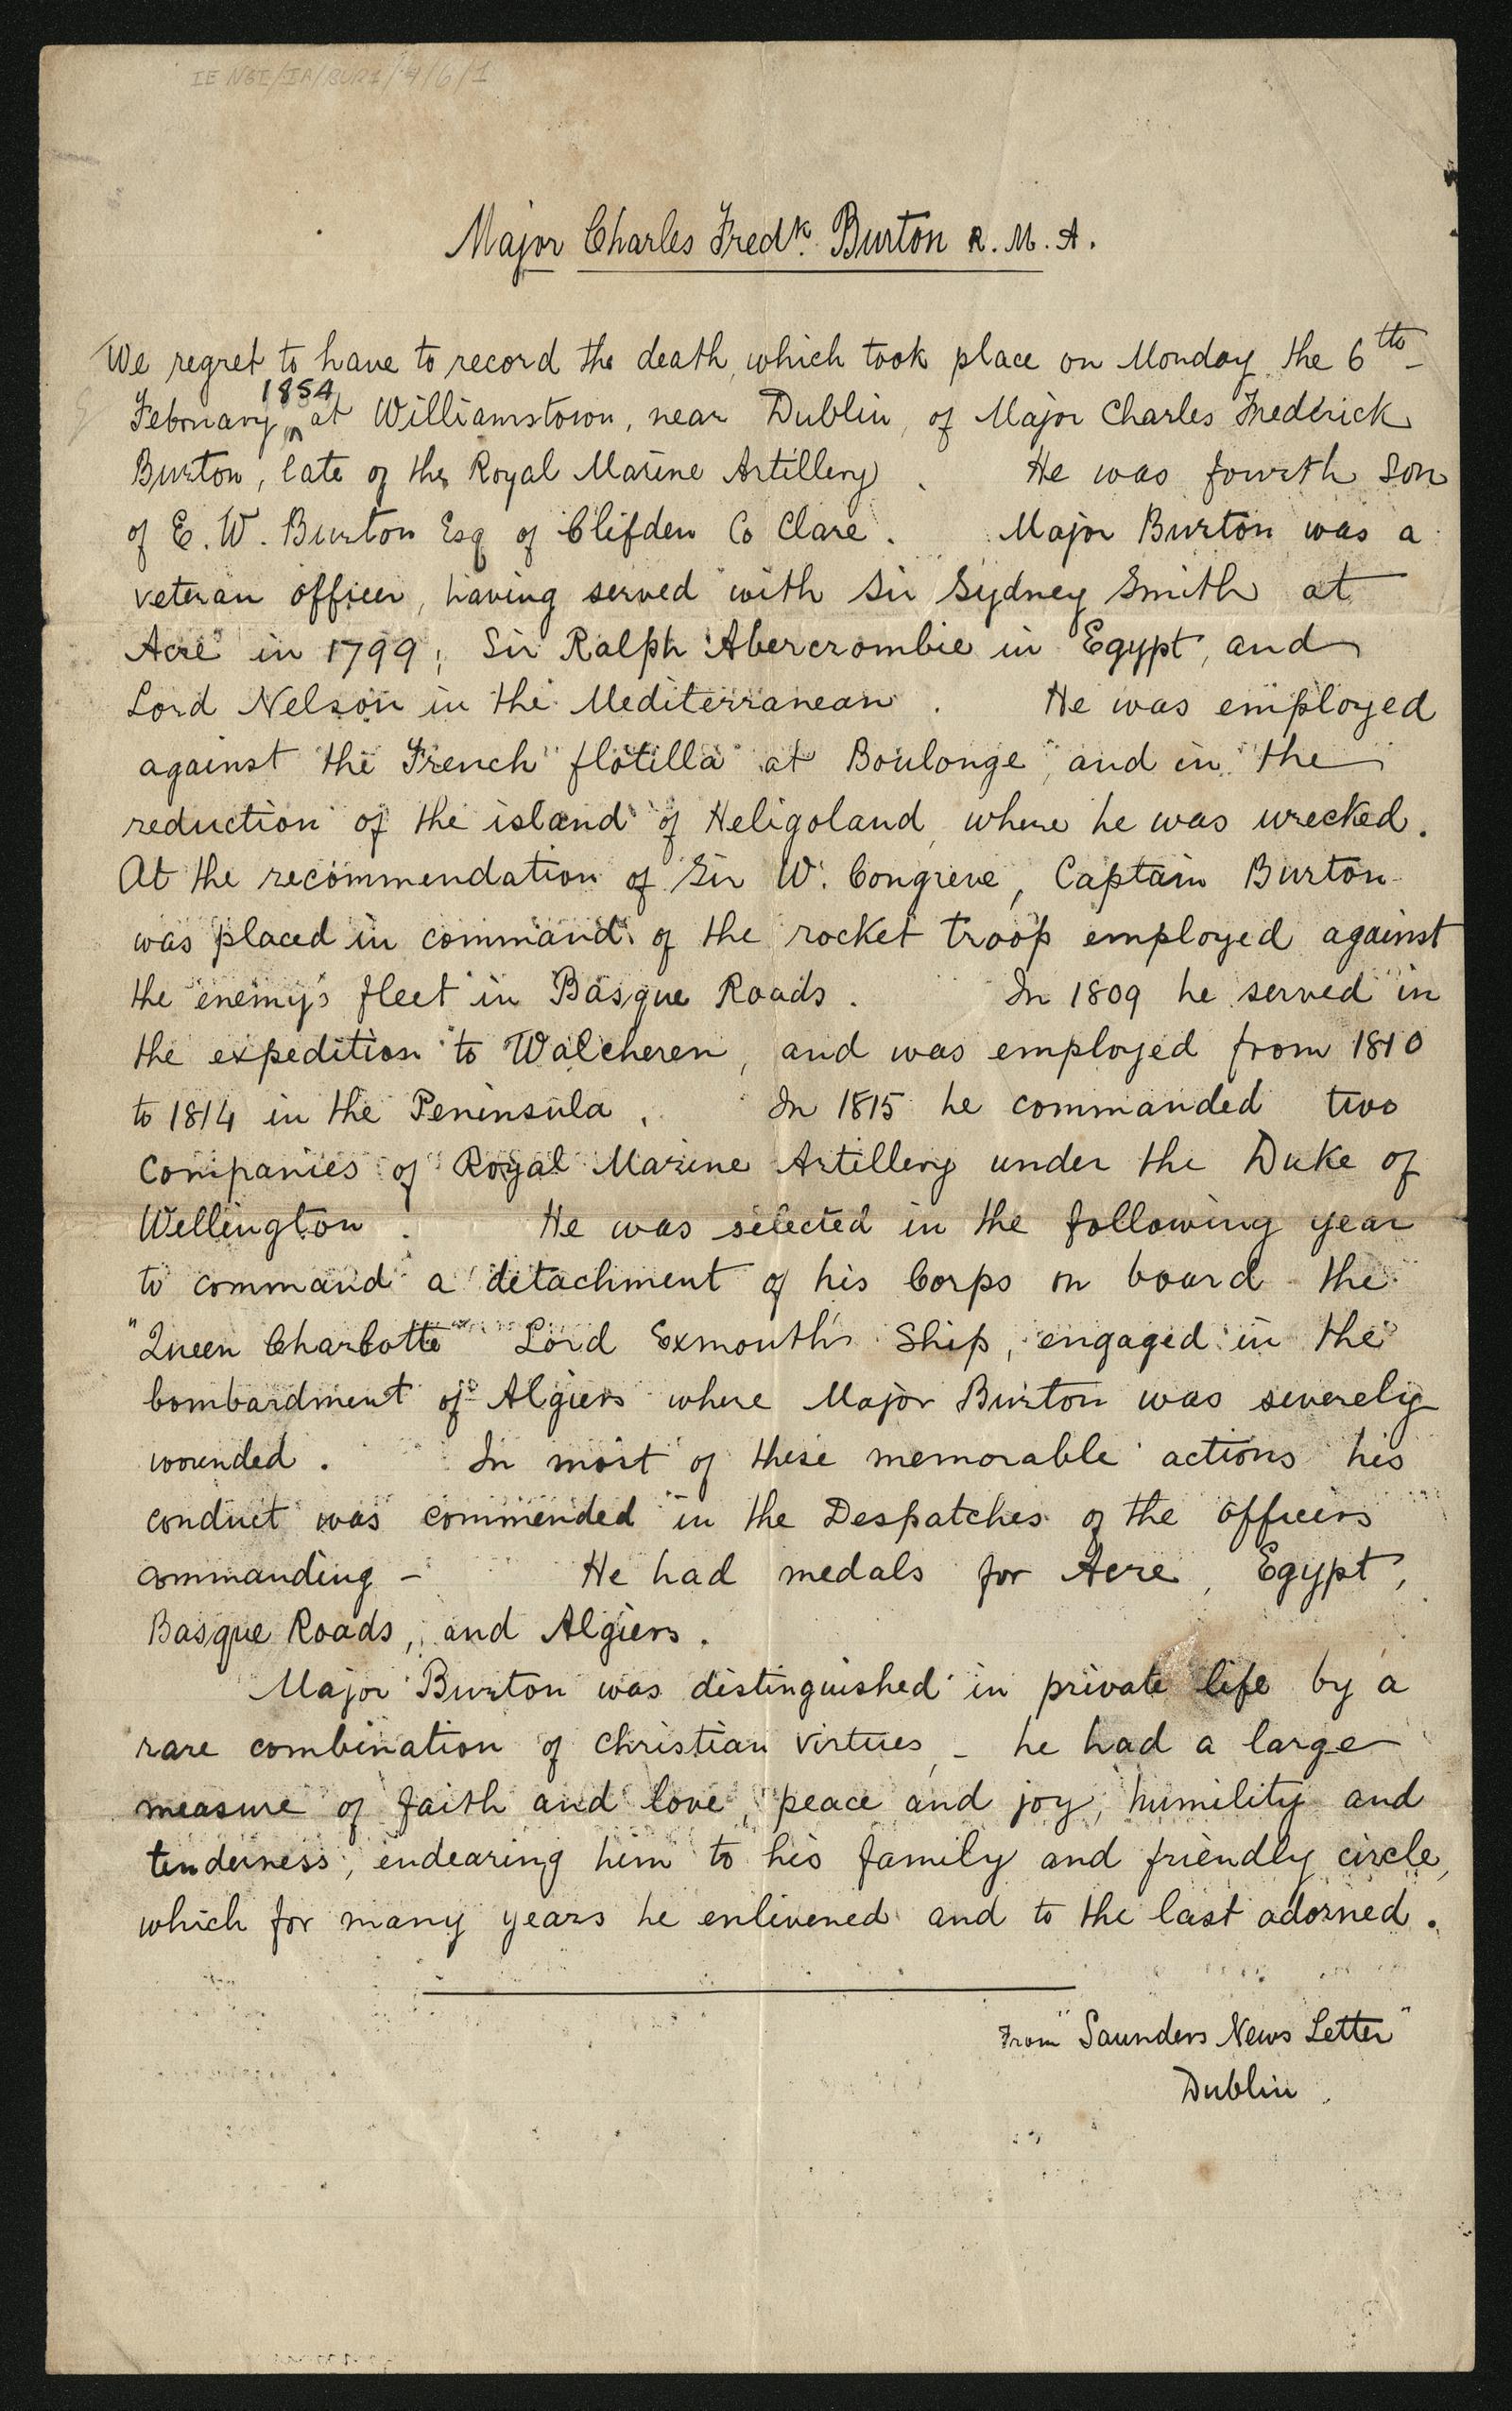 IE NGI/IA/BUR1/4/6/1
Major Charles Fredk. Burton R.M.A.
We regret to have to record the death, which took place on Monday the 6th
February 1854 at Williamstown, near Dublin, of Major Charles Frederick
Burton, late of the Royal Marine Artillery. He was fourth Son
of E. W. Burton Esq of Clifden Co Clare. Major Burton was a
veteran officer, having served with Sir Sydney Smith at
Acre in 1799; Sir Ralph Abercrombie in Egypt, and
Lord Nelson in the Mediterranean. He was employed
against the French flotilla at Boulonge, and in the
reduction of the island of Heligoland, where he was wrecked.
At the recommendation of Sir W. Congreve, Captain Burton
was placed in command of the rocket troop employed against
the enemy's fleet in Basque Roads. In 1809 he served in
the expedition to Walcheren, and was employed from 1810
to 1814 in the Peninsula. In 1815 he commanded two
Companies of Royal Marine Artillery under the Duke of
Wellington. He was selected in the following year
to command a detachment of his Corps on board the
"Queen Charlotte" Lord Exmouth's Ship, engaged in the
bombardment of Algiers where Major Burton was severely
wounded. In most of these memorable actions his
conduct was commended in the Despatches of the officers
commanding - He had medals for Acre, Egypt,
Basque Roads, and Algiers.
Major Burton was distinguished in private life by a
rare combination of Christian virtues, - he had a large
measure of faith and love, peace and joy, humility and
tenderness, endearing him to his family and friendly circle,
which for many years he enlivened and to the last adorned.
From "Saunders News Letter"
Dublin.